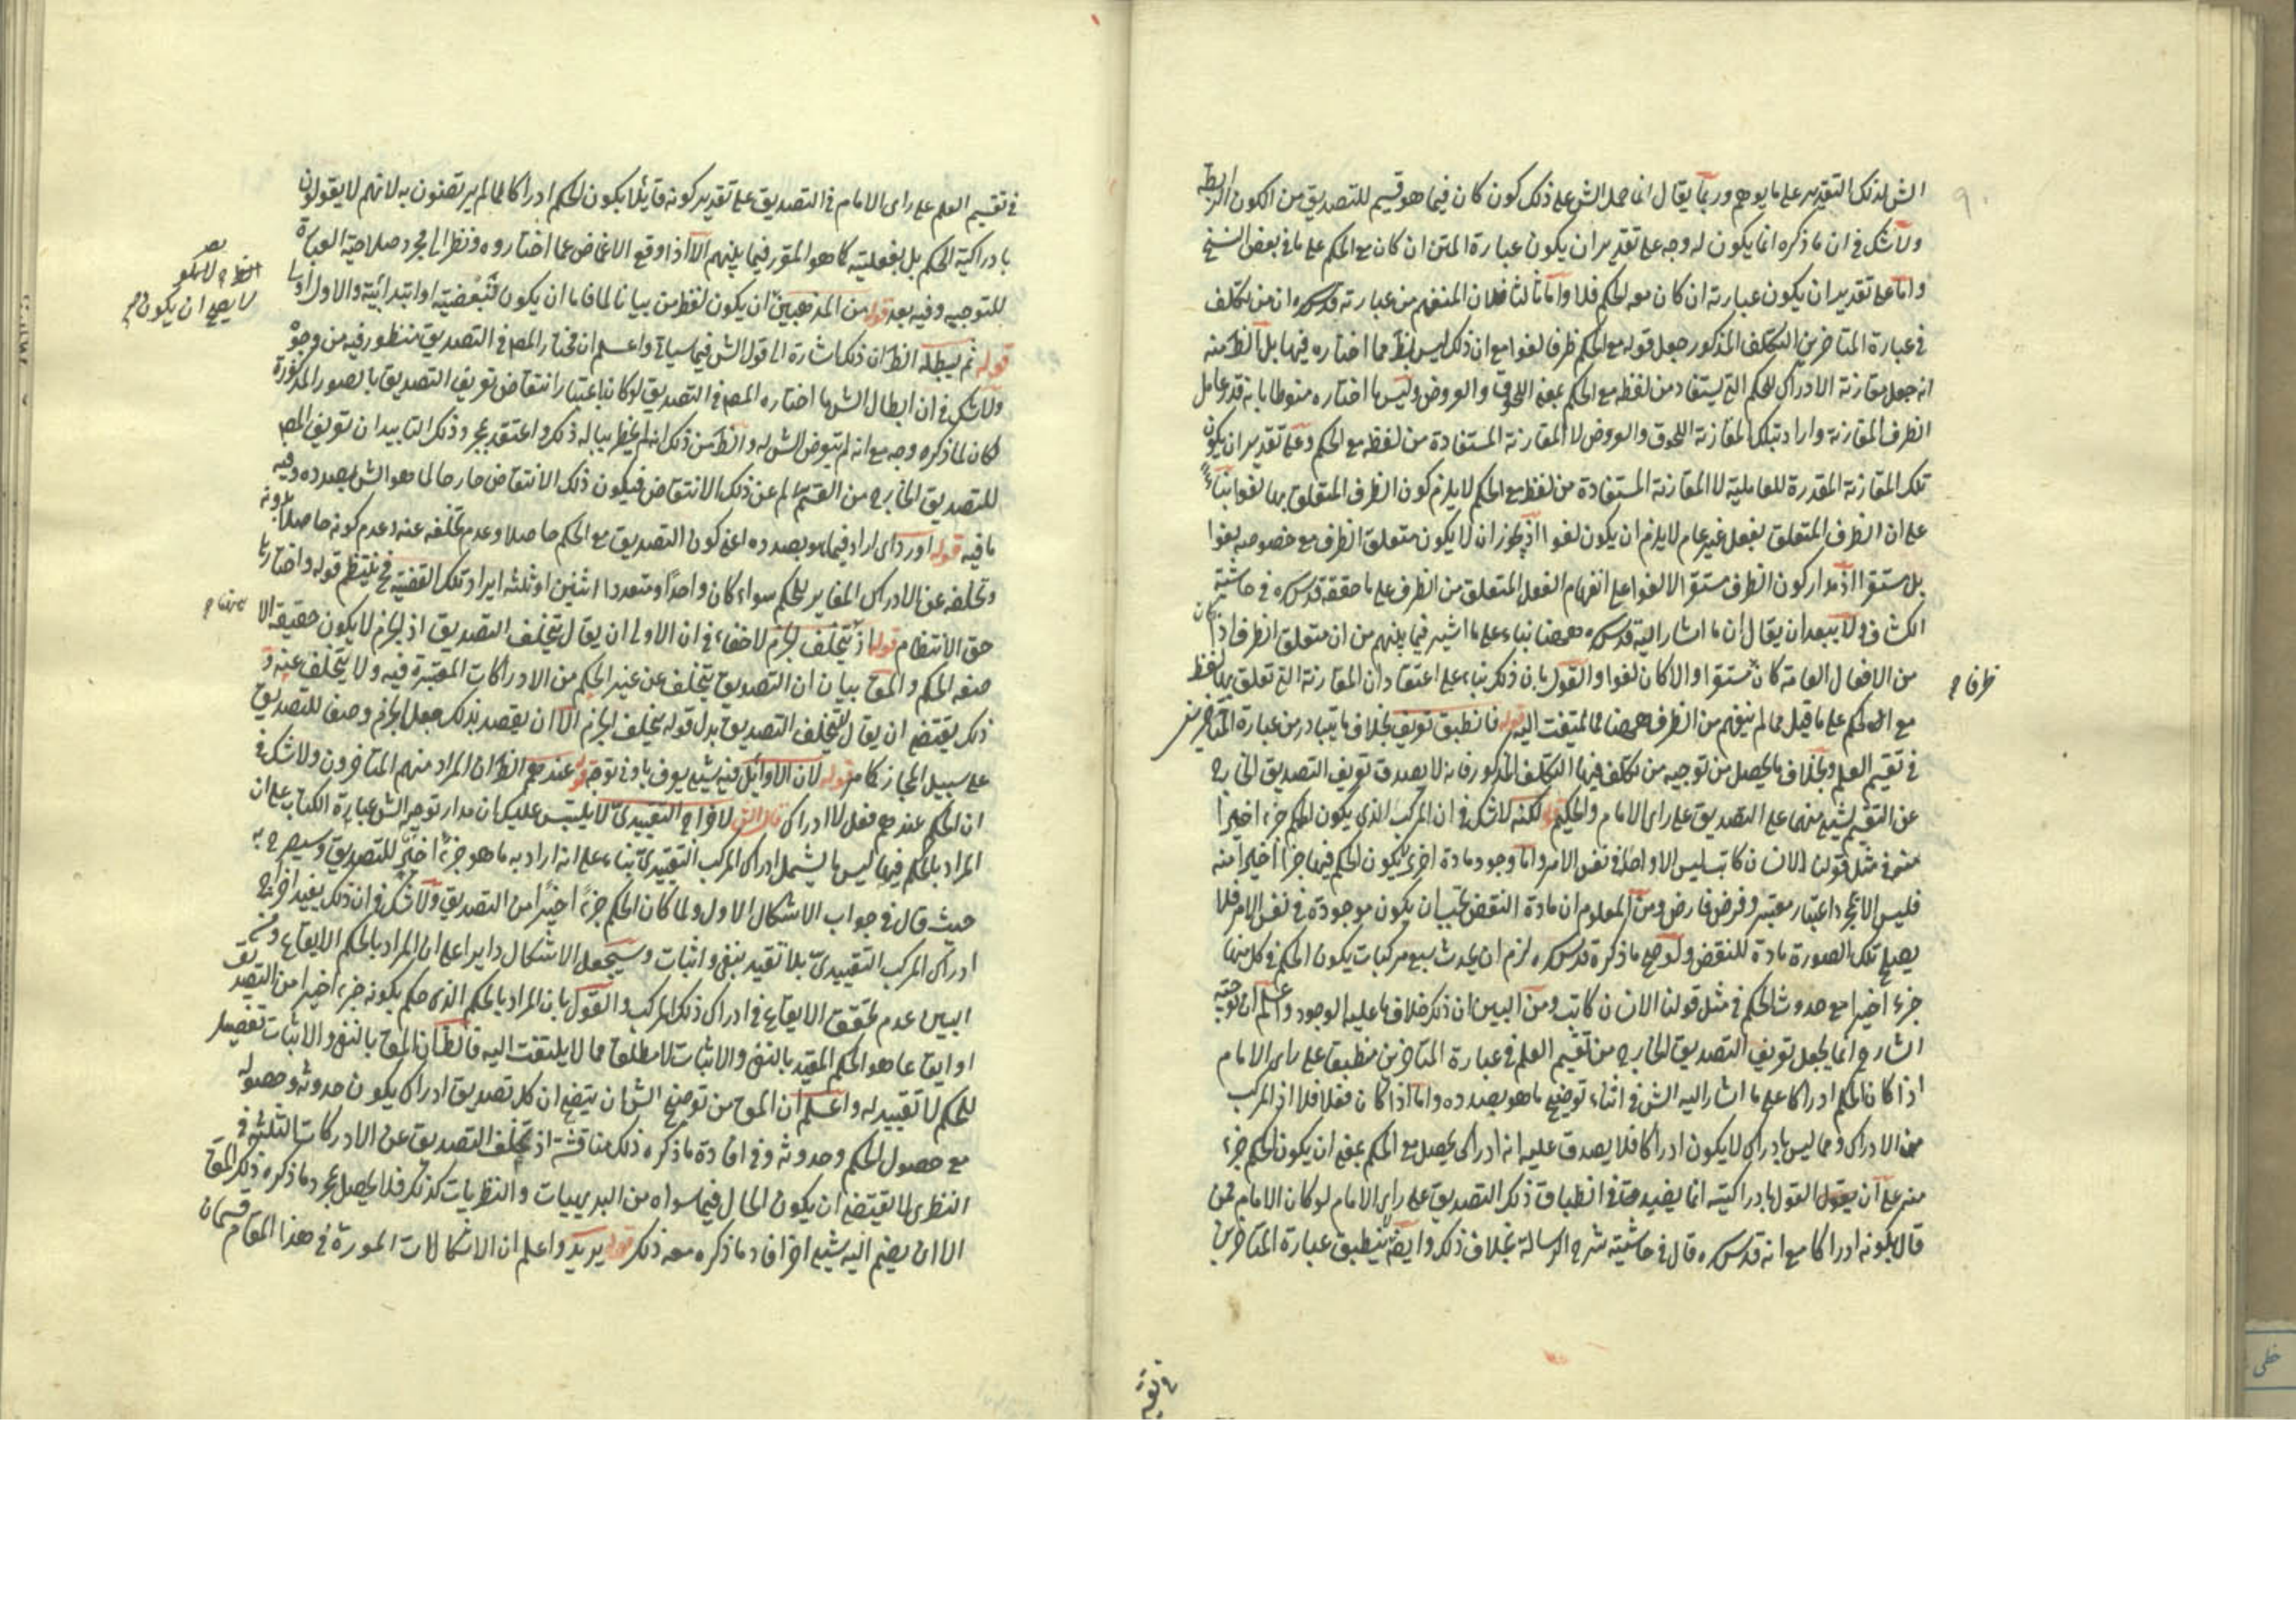 الش لذلك التقدير على ما يوهم وربما يقال انما حمل الش على ذلك كون كان فيما هو قسيم للتصديق من الكون الرابط
ولا شك فى ان ما ذكره انما يكون له وجه على تقدير ان يكون عبارة المتن ان كان مع الحكم على ما فى بعض النسخ
واما على تقدير ان يكون عبارته ان كان معه الحكم فلا واما ثالثا فلان المنفهم من عبارته قدس سره ان من تكلف
فى عبارة المتاخرين التكلف المذكور جعل قوله مع الحكم ظرفا لغوا مع ان ذلك ليس بظ مما اختاره فيها بل الظ منه
انه جعل مقارنة الادراك للحكم التى يستفاد من لفظه مع الحكم بمعنى اللحوق والعروض وليس ما اختاره منوطا بانه قدر عامل
الظرف المقارنة واراد بتلك المقارنة اللحوق والعروض لا المقارنة المستفادة من لفظه مع الحكم وعلى تقدير ان يكون
تلك المقارنة المقدرة للعاملية لا المقارنة المستفادة من لفظ مع الحكم لا يلزم كون الظرف المتعلق بها لغوا بناء
على ان الظرف المتعلق بفعل غير عام لا يلزم ان يكون لغوا اذ يجوز ان لا يكون متعلق الظرف مع خصوصه لغوا
بل مستقرا اذ مدار كون الظرف مستقرا لا لغوا على انفهام الفعل المتعلق من الظرف على ما حققه قدس سره فى حاشية
الكشاف ولا يبعد ان يقال ان ما اشار اليه قدس سره ههنا بناء على ما اشير فيما بينهم من ان متعلق الظرف اذا كان
من الافعال العامة كان مستقرا والا كان لغوا والقول بان ذلك بناء على اعتقاد ان المقارنة التى تعلق بها لفظ
ظرفا
مع الحكم على ما قيل مما لم ينفهم من الظرف ههنا مما لا يلتفت اليه قوله فانطبق تعريف بخلاف ما يتبادر من عبارة المتاخرين
فى تقسيم العلم وبخلاف ما يحصل من توجيه من تكلف فيها التكلف المذكور فانه لا يصدق تعريف التصديق الخارج
عن التقسيم لشيء منهما على التصديق على راى الامام والحكيم قوله لكنه لا شك فى ان المركب الذى يكون الحكم جزءا اخيرا
منه فى مثل قولنا الانسان كاتب ليس الا واحدا فى نفس الامر واما وجود مادة اخرى يكون الحكم فيها جزءا اخيرا منه
فليس الا بمجرد اعتبار معتبر وفرض فارض ومن المعلوم ان مادة النقض يجب ان يكون موجودة فى نفس الامر فلا
يصلح تلك الصورة مادة للنقض ولو صح ما ذكره قدس سره لزم ان يحدث سبع مركبات يكون الحكم فى كل منها
جزء اخيرا مع حدوث الحكم فى مثل قولنا الانسان كاتب ومن البين ان ذلك خلاف ما عليه الوجود واعلم ان توجيه
الشارح انما يجعل تعريف التصديق الخارج من تقسيم العلم فى عبارة المتاخرين منطبقا على راى الامام
اذا كان الحكم ادراكا على ما اشار اليه الش فى اثناء توضيح ما هو بصدده واما اذا كان فعلا فلا اذ المركب
من الادراك ومما ليس بادراك لا يكون ادراكا فلا يصدق عليه انه ادراك يحصل مع الحكم بمعنى ان يكون الحكم جزء
منه على ان القول بادراكيته انما يفيد هنا فى انطباق ذلك التصديق على راى الامام لو كان الامام ممن
قال بكونه ادراكا مع انه قدس سره قال فى حاشيته شرح الرسالة بخلاف ذلك وايضا ينطبق عبارة المتاخرين
فى تقسيم
فى تقسيم العلم على راى الامام فى التصديق على تقدير كونه قايلا بكون الحكم ادراكا لما لم يرتضون به لانهم لا يقولون
بادراكية الحكم بل بفعليته كما هو المقرر فيما بينهم الا اذا وقع الاغماض عما اختاروه ونظر الى مجرد صلاحية العبارة
للتوجيه وفيه بعد قوله من المذهبين ان يكون لفظ من بيانا لما فاما ان يكون تبعضية او ابتدائية والاول
لا يصح ان يكون
قوله ثم يبطله الظ ان ذلك اشارة الى قول الش فيما سياتى واعلم ان مختار المص فى التصديق منظور فيه من وجوه
ولا شك فى ان ابطال الش ما اختاره المص فى التصديق لو كان باعتبار انتقاض تعريف التصديق بالصور المذكورة
كان لما ذكره وجه مع انه لم يتعرض الش له والظ من ذلك انه لم يخطر بباله ذلك واعتقد بمجرد ذلك التاييد ان تعريف المص
للتصديق الخارج من القسمة سالم عن ذلك الانتقاض فيكون ذلك الانتقاض خارجا لما هو الش بصدده وفيه
ما فيه قوله اورد اى اراد فيما هو بصدده اعنى كون التصديق مع الحكم حاصلا وعدم تخلفه عنه وعدم كونه حاصلا بدونه
وتخلفه عن الادراك المغاير للحكم سواء كان واحدا او متعددا اثنين او ثلثة ايراد تلك القضية فح ينتظم قوله واختارها
حق الانتظام قوله اذ يتخلف الجزم لا خفاء فى ان الاولى ان يقال يتخلف التصديق اذ الجزم لا يكون حقيقة الا
صفة الحكم والمقص بيان ان التصديق يتخلف عن غير الحكم من الادراكات المعتبرة فيه ولا يتخلف عنه و
ذلك يقتضى ان يقال يتخلف التصديق بدل قوله يتخلف الجزم الا ان يقصد بذلك جعل الجزم وصفا للتصديق
على سبيل المجاز كما مر قوله لان الاوائل فيه شيء يعرف بادنى توجه قوله عندهم الظ ان المراد منهم المتاخرون ولا شك فى
ان الحكم عندهم فعل لا ادراك قال الش لاخراج التقييدى لا يلتبس عليك ان مدار توجيه الش عبارة الكتاب على ان
المراد بالحكم فيها ليس ما يشمل ادراك المركب التقييدى بناء على انه اراد به ما هو جزء اخير للتصديق وسيصرح به
حيث قال فى جواب الاشكال الاول ولما كان الحكم جزءا اخيرا من التصديق ولا شك فى ان ذلك يفيد اخراج
ادراك المركب التقييدى بلا تقييد بنفى واثبات وسيجعل الاشكال دايرا على ان المراد بالحكم الايقاع ومن
البين عدم تحقق الايقاع فى ادراك ذلك المركب والقول بان المراد بالحكم الذى حكم بكونه جزء اخيرا من التصديق
او ايقاعا هو الحكم المقيد بالنفى والاثبات لا مطلق مما لا يلتفت اليه فالظ ان المقص بالنفى والاثبات تفصيل
للحكم لا تقييد له واعلم ان المقص من توضيح الش ان يتضح ان كل تصديق ادراك يكون حدوثه وحصوله
مع حصول الحكم وحدوثه وفى افادة ما ذكره ذلك مناقشة اذ تخلف التصديق عن الادركات الثلثة فى
النظرى لا يقتضى ان يكون الحال فيما سواه من البديهيات والنظريات كذلك فلا يحصل بمجرد ما ذكره ذلك المقص
الا ان يضم اليه شيء اخر افاد ما ذكره معه ذلك قوله يريد واعلم ان الاشكالات الموردة فى هذا المقام قسمان